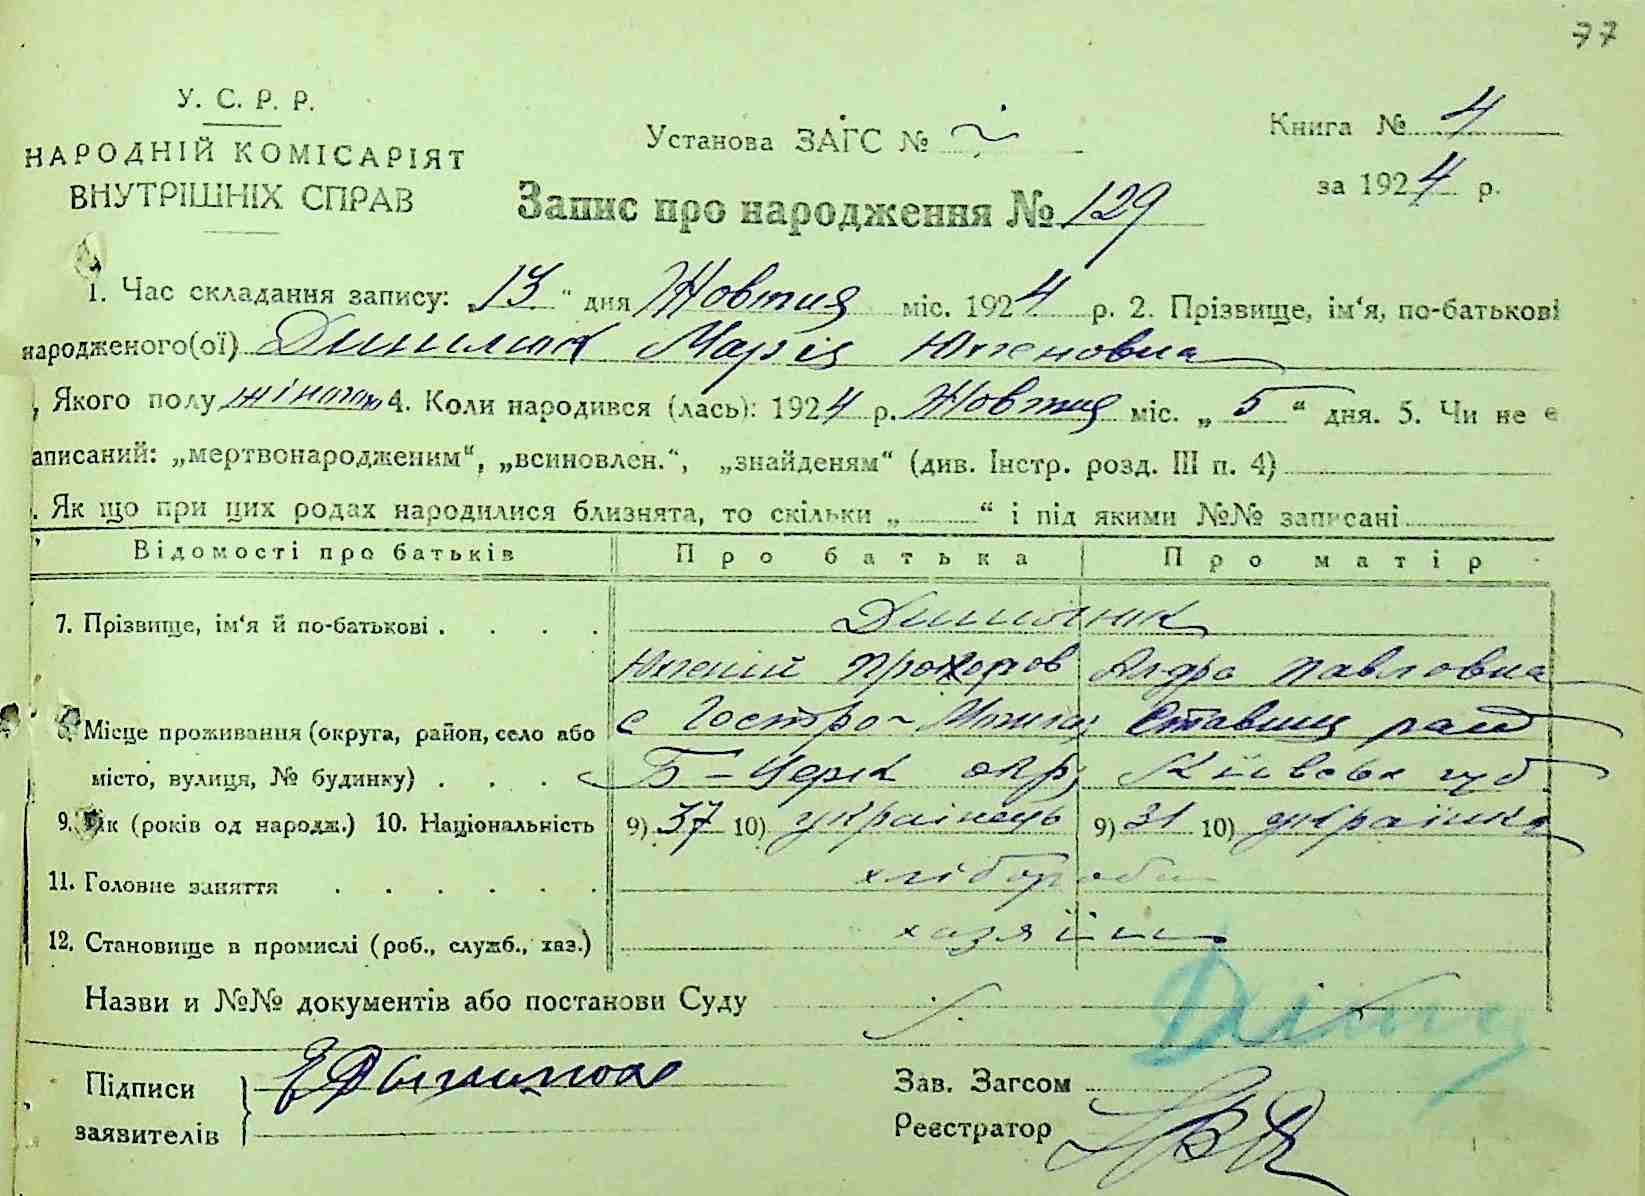 77
У. С. Р. Р.
НАРОДНІЙ КОМІСАРІЯТ
ВНУТРІШНІХ СПРАВ
Установа ЗАГС №
Книга № 4
за 1924 р.
Запис про народження № 129
1. Час складання запису: „13“ дня Жовтня міс. 1924 р. 2. Прізвище, ім'я, по-батькові
народженого(ої) Марія
, Якого полу жіночого 4. Коли народився (лась): 1924 р. Жовтня міс. „5“ дня. 5. Чи не є
аписаний: „мертвонародженим“, „всиновлен.“, „знайденям“ (див. Інстр. розд. III п. 4)
. Як що при цих родах народилися близнята, то скільки „ “ і під якими №№ записані
Відомості про батьків Про батька Про матір
7. Прізвище, ім'я й по-батькові
Павловна
8. Місце проживання (округа, район, село або с Гостро-Могила Ставищ район
місто, вулиця, № будинку) Б-Церк окр, Київська губ
9. Вік (років од народж.) 10. Національність 9) 37 10) українець 9) 31 10) українка
11. Головне заняття хлібороби
12. Становище в промислі (роб., служб., хаз.) хазяїни
Назви и №№ документів або постанови Суду
Підписи
заявителів
Зав. Загсом
Реєстратор